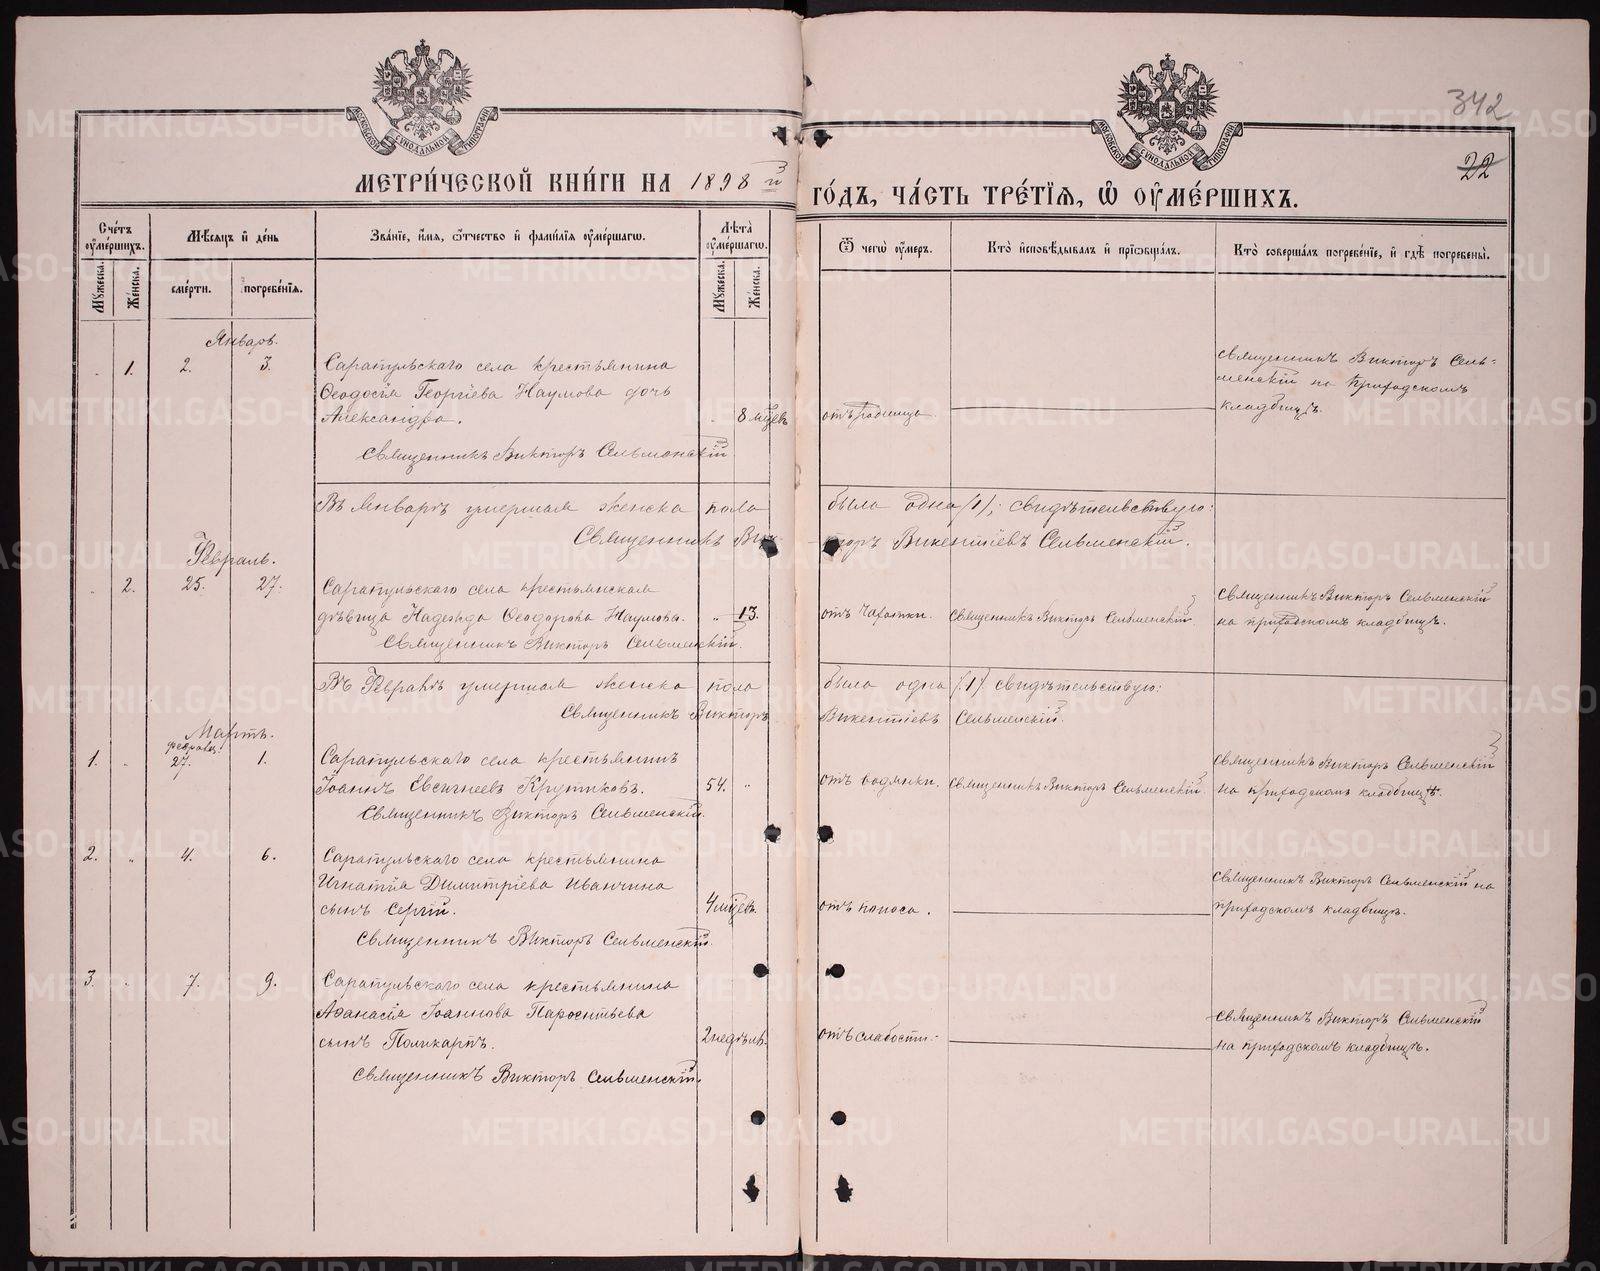 342
22
МЕТРИ́ЧЕСКОЙ КНИ́ГИ НА 1898 й
ГО́ДЪ, ЧА́СТЬ ТРЕ́ТЇЯ, Ѡ҆ ОУ҆МЕ́РШИХЪ.
МОСКОВСКОЙ СѴНОДАЛЬНОЙ ТИПОГРАФІИ
МОСКОВСКОЙ СѴНОДАЛЬНОЙ ТИПОГРАФІИ
Сче́тъ оу҆ме́ршихъ.
Мꙋ́жеска.
Же́нска.
Мѣ́сѧцъ и҆ де́нь
сме́рти.
погребе́нїѧ.
Зва́нїе, и҆́мѧ, ѻ҆́тчество и҆ фами́лїѧ оу҆ме́ршагѡ.
Лѣ́та оу҆ме́ршагѡ.
Мꙋ́жеска.
Же́нска.
Ѿ чегѡ̀ оу҆́меръ.
Кто̀ и҆сповѣ́дывалъ и҆ прїѡбща́лъ.
Кто̀ соверша́лъ погребе́нїе, и҆ гдѣ̀ погребены̀.
Январь.
1. 2. 3. Сарапульскаго села крестьянина
Ѳеодосія Георгіева Наумова дочь
Александра. 8 мцевъ
Священникъ Викторъ Сельменскій
отъ родимца
Священникъ Викторъ Сель-
менскій на Приходскомъ
кладбищѣ.
Въ Январѣ умершая женска пола была одна (1); свидѣтельствую:
Священникъ Викторъ Викентіевъ Сельменскій.
Февраль.
2. 25. 27. Сарапульскаго села крестьянская
дѣвица Надежда Ѳеодорова Наумова. „ 13.
Священникъ Викторъ Сельменскій.
отъ чахотки. Священникъ Викторъ Сельменскій.
Священникъ Викторъ Сельменскій
на приходскомъ кладбищѣ.
Въ Февралѣ умершая женска пола была одна (1) свидѣтельствую:
Священникъ Викторъ Викентіевъ Сельменскій.
Мартъ.
февраля
1. „ 27. 1. Сарапульскаго села крестьянинъ
Іоаннъ Евсигнеевъ Крутиковъ. 54. „
Священникъ Викторъ Сельменскій.
отъ водянки. Священникъ Викторъ Сельменскій.
Священникъ Викторъ Сельменскій
на приходскомъ кладбищѣ.
2. „ 4. 6. Сарапульскаго села крестьянина
Игнатія Димитріева Иванчина
сынъ Сергій. 4 мцевъ
Священникъ Викторъ Сельменскій.
отъ поноса.
Священникъ Викторъ Сельменскій на
приходскомъ кладбищѣ.
3. „ 7. 9. Сарапульскаго села крестьянина
Аѳанасія Іоаннова
сынъ Поликарпъ. 2 недѣль.
Священникъ Викторъ Сельменскій.
отъ слабости.
Священникъ Викторъ Сельменскій
на приходскомъ кладбищѣ.
METRIKI.GASO-URAL.RU